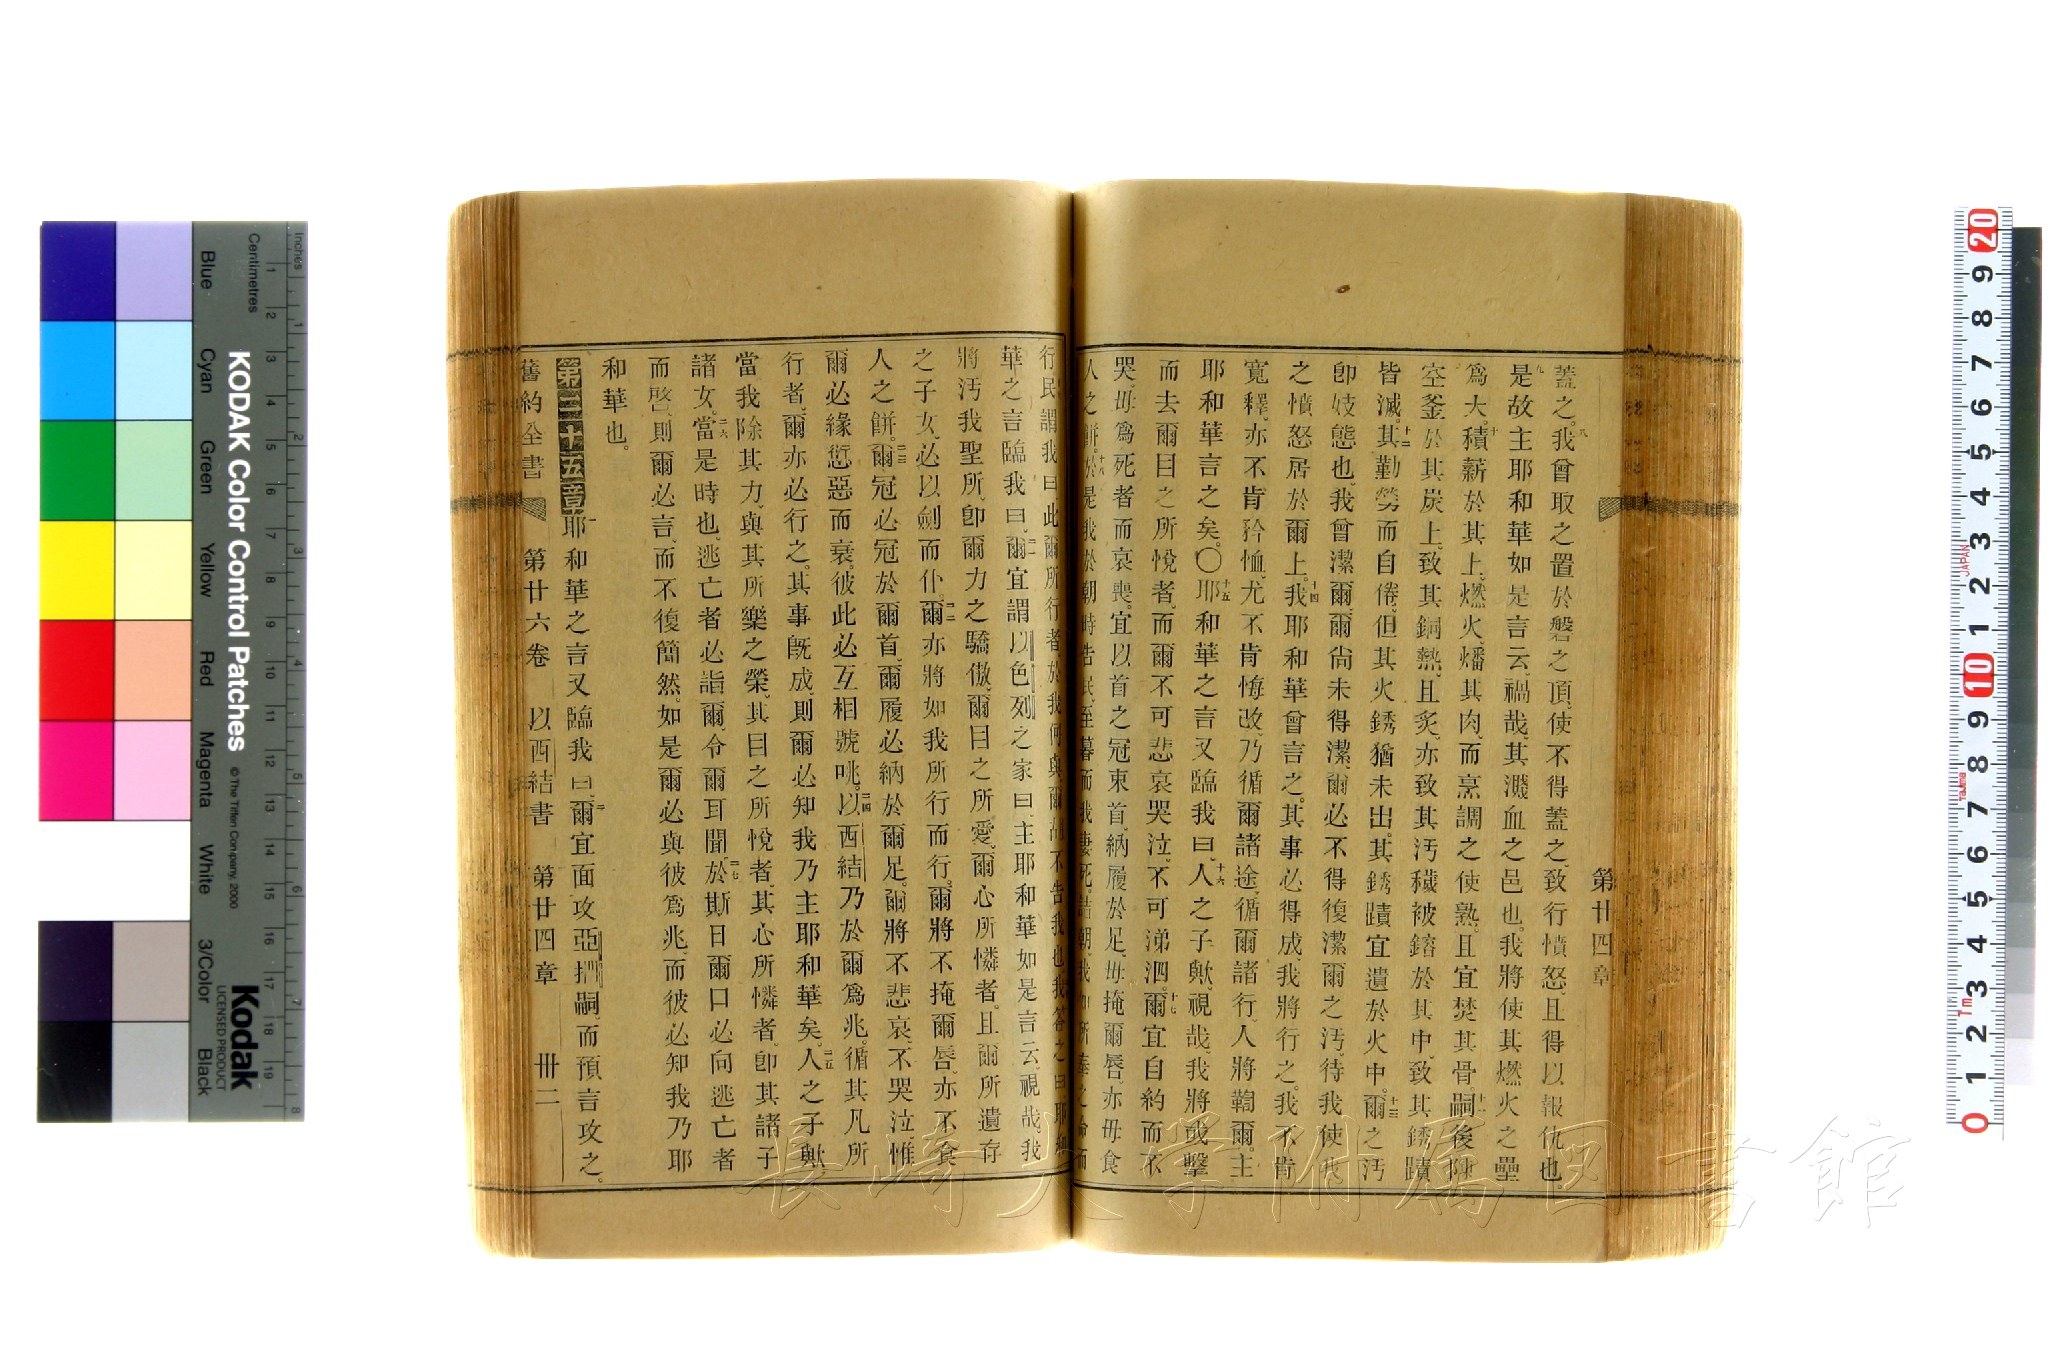 第廿四章
蓋之、八我曾取之置於磐之頂、使不得蓋之、致行憤怒、且得以報仇也
九是故主耶和華如是言云、禍哉、其濺血之邑也、我將使其燃火之壘
爲大、十積薪於其上、燃火、燔其肉、而烹調之使熟、且宜焚其骨、十一嗣後陳
空釜於其炭上、致其銅熱、且炙、亦致其汚穢被鎔於其中、致其銹蹟
皆滅、十二其勤勞而自倦、但其火銹猶未出、其銹蹟宜遺於火中、十三爾之汚
卽妓態也、我曾潔爾、爾尙未得潔、爾必不得復潔爾之汚、待我使我
之憤怒居於爾上、十四我耶和華曾言之、其事必得成、我將行之、我不肯
寬釋、亦不肯矜恤、尤不肯悔改、乃循爾諸途、循爾諸行、人將鞫爾、主
耶和華言之矣、〇十五耶和華之言又臨我曰、十六人之子歟、視哉、我將或擊
而去爾目之所悅者、而爾不可悲哀哭泣、不可涕泗、十七爾宜自約而不
哭、毋爲死者而哀喪、宜以首之冠束首、納履於足、毋掩爾唇、亦毋食
人之餅、十八於是我於朝時告民、至暮而我妻死、詰朝、我如所奉之命而
行民謂我曰、此爾所行者、於我何與、爾胡不告我也、我答之曰、耶和
華之言臨我曰、二一爾宜謂以色列之家曰、主耶和華如是言云、視哉、我
將汚我聖所、卽爾力之驕傲、爾目之所愛、爾心所憐者、且爾所遺存
之子女、必以劍而仆、二二爾亦將如我所行而行、爾將不掩爾唇、亦不食
人之餅、二三爾冠必冠於爾首、爾履必納於爾足、爾將不悲哀、不哭泣、惟
爾必緣愆惡而衰、彼此必互相號咷、二四以西結乃於爾爲兆、循其凡所
行者、爾亦必行之、其事旣成、則爾必知我乃主耶和華矣、二五人之子歟、
當我除其力、與其所樂之榮、其目之所悅者、其心所憐者、卽其諸子
諸女、二六當是時也、逃亡者必詣爾、令爾耳聞、二七於斯日爾口必向逃亡者
而啓、則爾必言、而不復箝然、如是爾必與彼爲兆、而彼必知我乃耶
和華也、
第二十五章一耶和華之言又臨我曰、二爾宜面攻亞捫嗣、而預言攻之、
舊約全書 第廿六卷 以西結書 第廿四章 卅二
KODAK Color Control Patches © The Tiffen Company, 2000
Kodak
LICENSED PRODUCT
Inches
Centimetres
Blue Cyan Green Yellow Red Magenta White 3/Color Black
長崎大学附属図書館